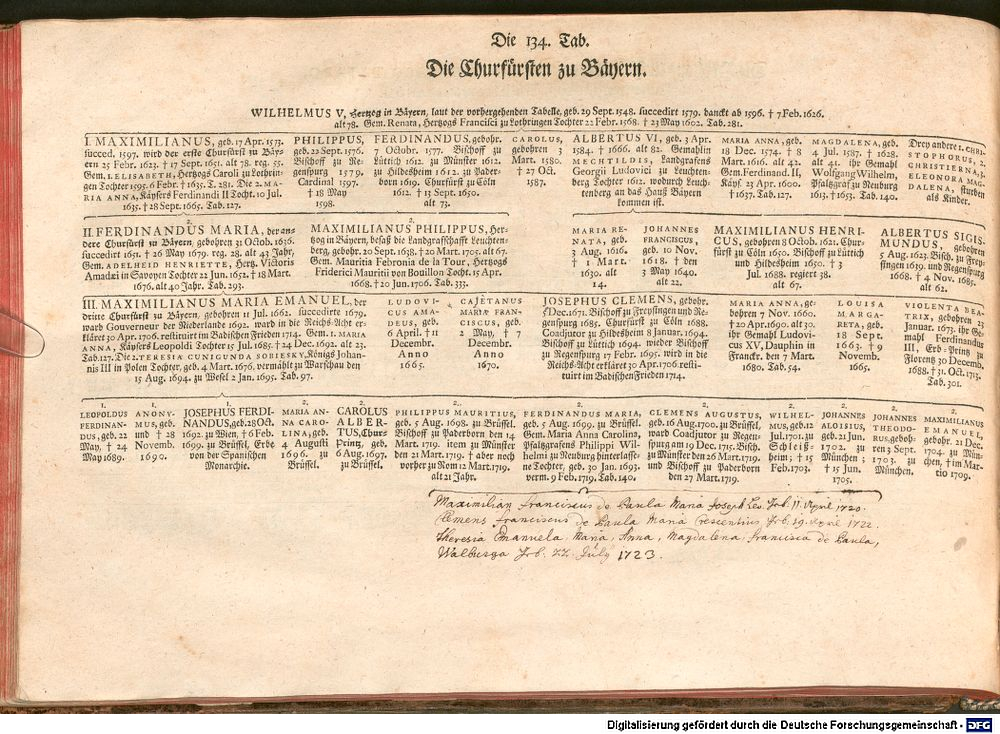 Die 134. Tab.
Die Churfürsten zu Bäyern.
WILHELMUS V, Hertzog in Bäyern, laut der vorhergehenden Tabelle, geb. 29 Sept. 1548. succedirt 1579. danckt ab 1596. † 7 Feb. 1626.
alt 78. Gem. Renata, Hertzogs Francisci zu Lothringen Tochter 22 Febr. 1568. † 23 May 1602. Tab. 281.
I. MAXIMILIANUS, geb. 17 Apr. 1573.
succed. 1597. wird der erste Churfürst zu Bäy-
ern 25 Febr. 1623. † 17 Sept. 1651. alt 78. reg. 55.
Gem. 1. ELISABETH, Hertzogs Caroli zu Lothrin-
gen Tochter 1595. 6 Febr. † 1635. T. 281. Die 2. MA-
RIA ANNA, Käysers Ferdinandi II Tocht. 10 Jul.
1635. † 28 Sept. 1665. Tab. 127.
PHILIPPUS,
geb. 22 Sept. 1576.
Bischoff zu Re-
genspurg 1579.
Cardinal 1597.
† 18 May
1598.
FERDINANDUS, gebohr.
7 Octobr. 1577. Bischoff zu
Lüttich 1612. zu Münster 1612.
zu Hildesheim 1612. zu Pader-
born 1619. Churfürst zu Cöln
1612. † 13 Sept. 1650.
alt 73.
CAROLUS,
gebohren 3
Mart. 1580.
† 27 Oct.
1587.
ALBERTUS VI, geb. 3 Apr.
1584. † 1666. alt 82. Gemahlin
MECHTILDIS, Landgrafens
Georgii Ludovici zu Leuchten-
berg Tochter 1612. wodurch Leuch-
tenberg an das Hauß Bäyern
kommen ist.
MARIA ANNA, geb.
18 Dec. 1574. † 8
Mart. 1616. alt 42.
Gem. Ferdinand. II,
Käys. 23 Apr. 1600.
† 1637. Tab. 127.
MAGDALENA, geb.
4 Jul. 1587. † 1628.
alt 41. ihr Gemahl
Wolfgang Wilhelm,
Pfaltzgraf zu Neuburg
1613. † 1653. Tab. 140.
Drey andere 1. CHRI-
STOPHORUS, 2.
CHRISTIERNA, 3.
ELEONORA MAG-
DALENA, sturben
als Kinder.
II. FERDINANDUS MARIA, der an-
dere Churfürst zu Bäyern, gebohren 31 Octob. 1636.
succedirt 1651. † 26 May 1679. reg. 28. alt 43 Jahr,
Gem. ADELHEID HENRIETTE, Hertz. Victoris
Amadei in Savoyen Tochter 22 Jun. 1652. † 18 Mart.
1676. alt 40 Jahr. Tab. 293.
MAXIMILIANUS PHILIPPUS, Her-
tzog in Bäyern, besaß die Landgrafschafft Leuchten-
berg, gebohr. 20 Sept. 1638. † 20 Mart. 1705. alt 67.
Gem. Mauritia Febronia de la Tour, Hertzogs
Friderici Mauritii von Bouillon Tocht. 15 Apr.
1668. † 20 Jun. 1706. Tab. 333.
MARIA RE-
NATA, geb.
3 Aug. 1616.
† 1 Mart.
1630. alt
14.
JOHANNES
FRANCISCUS,
geb. 10 Nov.
1618. † den
3 May 1640.
alt 22.
MAXIMILIANUS HENRI-
CUS, gebohren 8 Octob. 1621. Chur-
fürst zu Cöln 1650. Bischoff zu Lüttich
und Hildesheim 1650. † 3
Jul. 1688. regiert 38.
alt 67.
ALBERTUS SIGIS-
MUNDUS, gebohren
5 Aug. 1623. Bisch. zu Frey-
singen 1639. und Regenspurg
1668. † 4 Nov. 1685.
alt 62.
III. MAXIMILIANUS MARIA EMANUEL, der
dritte Churfürst zu Bäyern, gebohren 11 Jul. 1662. succedirte 1679.
ward Gouverneur der Niederlande 1692. ward in die Reichs-Acht er-
kläret 30 Apr. 1706. restituirt im Badischen Frieden 1714. Gem. 1. MARIA
ANNA, Käysers Leopoldi Tochter 15 Jul. 1685. † 24 Dec. 1692. alt 23.
Tab. 127. Die 2. TERESIA CUNIGUNDA SOBIESKY, Königs Johan-
nis III in Polen Tochter, geb. 4 Mart. 1676. vermählt zu Warschau den
15 Aug. 1694. zu Wesel 2 Jan. 1695. Tab. 97.
LUDOVI-
CUS AMA-
DEUS, geb.
6 April. † 11
Decembr.
Anno
1665.
CAJETANUS
MARIA FRAN-
CISCUS, geb.
2 May, † 7
Decembr.
Anno
1670.
JOSEPHUS CLEMENS, gebohr.
5 Dec. 1671. Bischoff zu Freysingen und Re-
genspurg 1685. Churfürst zu Cöln 1688.
Coadjutor zu Hildesheim 8 Januar. 1694.
Bischoff zu Lüttich 1694. wieder Bischoff
zu Regenspurg 17 Febr. 1695. wird in die
Reichs-Acht erkläret 30 Apr. 1706. resti-
tuirt im Badischen Frieden 1714.
MARIA ANNA, ge-
bohren 7 Nov. 1660.
† 20 Apr. 1690. alt 30.
ihr Gemahl Ludovi-
cus XV, Dauphin in
Franckr. den 7 Mart.
1680. Tab. 54.
LOUISA
MARGA-
RETA, geb.
18 Sept.
1663. † 9
Novemb.
1665.
VIOLENTA BEA-
TRIX, gebohren 23
Januar. 1673. ihr Ge-
mahl Ferdinandus
III, Erb-Printz zu
Florentz 30 Decemb.
1688. † 31 Oct. 1713.
Tab. 301.
1.
LEOPOLDUS
FERDINAN-
DUS, geb. 22
May, † 24
May 1689.
1.
ANONY-
MUS, geb.
und † 28
Novemb.
1690.
1.
JOSEPHUS FERDI-
NANDUS, geb. 28 Oct.
1692. zu Wien, † 6 Feb.
1699. zu Brüssel, Erbe
von der Spanischen
Monarchie.
2.
MARIA AN-
NA CARO-
LINA, geb.
4 Augusti
1696. zu
Brüssel.
2.
CAROLUS
ALBER-
TUS, Chur-
Printz, geb.
6 Aug. 1697.
zu Brüssel.
2.
PHILIPPUS MAURITIUS,
geb. 5 Aug. 1698. zu Brüssel.
Bischoff zu Paderborn den 14
Mart. 1719. item zu Münster
den 21 Mart. 1719. † aber noch
vorher zu Rom 12 Mart. 1719.
alt 21 Jahr.
2.
FERDINANDUS MARIA,
geb. 5 Aug. 1699. zu Brüssel.
Gem. Maria Anna Carolina,
Pfaltzgrafens Philippi Wil-
helmi zu Neuburg hinterlasse-
ne Tochter, geb. 30 Jan. 1693.
verm. 9 Feb. 1719. Tab. 140.
2.
CLEMENS AUGUSTUS,
geb. 16 Aug. 1700. zu Brüssel,
ward Coadjutor zu Regen-
spurg am 19 Dec. 1715. Bisch.
zu Münster den 26 Mart. 1719.
und Bischoff zu Paderborn
den 27 Mart. 1719.
2.
WILHEL-
MUS, geb. 12
Jul. 1701. zu
Schleiß-
heim; † 15
Feb. 1703.
2.
JOHANNES
ALOISIUS,
geb. 21 Jun.
1702. zu
München;
† 15 Jun.
1705.
2.
JOHANNES
THEODO-
RUS, geboh-
ren 3 Sept.
1703. zu
München.
2.
MAXIMILIANUS
EMANUEL,
gebohr. 21 Dec.
1704. zu Mün-
chen, † im Mar-
tio 1709.
Maximilian Franciscus de Paula Maria Joseph Leo. geb. 11. April 1720.
Clemens Franciscus de Paula Maria Crescentius geb. 19. April 1722.
Theresia Emanuela Maria, Anna, Magdalena, Francisca de Paula,
Walburga geb. 22 July 1723.
Digitalisierung gefördert durch die Deutsche Forschungsgemeinschaft - DFG